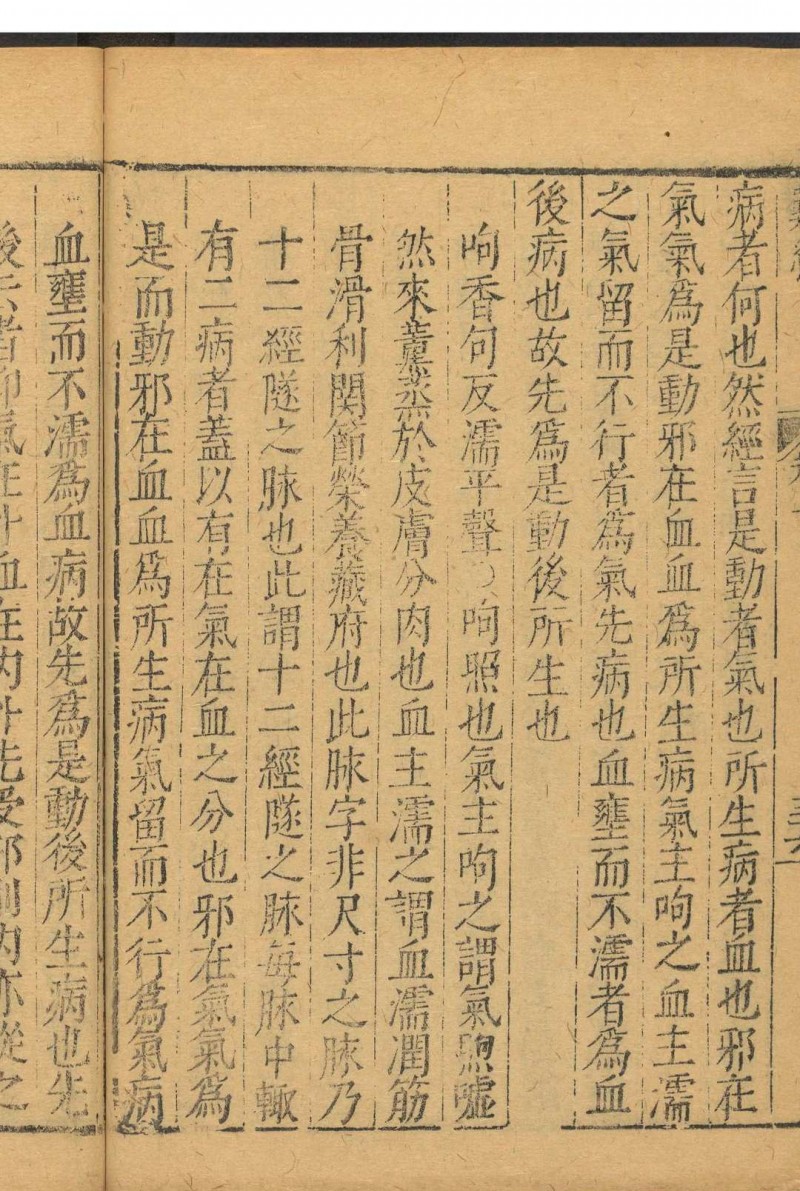 病者何也然經言是動者氣也所生病者血也邪在
氣氣爲是動邪在血血爲所生病氣主呴之血主濡
之氣留而不行者爲氣先病也血壅而不濡者爲血
後病也故先爲是動後所生也
呴香句反濡平聲○呴煦也氣主呴之謂氣煦嘘
然來薰蒸於皮膚分肉也血主濡之謂血濡潤筋
骨滑利関節榮養藏府也此脉字非尺寸之脉乃
十二經隧之脉也此謂十二經隧之脉每脉中輙
有二病者蓋以有在氣在血之分也邪在氣氣爲
是而動邪在血血爲所生病氣留而不行爲氣病
血壅而不濡爲血病故先爲是動後所生病也先
後云者抑氣在外血在内外先受邪則内亦從之